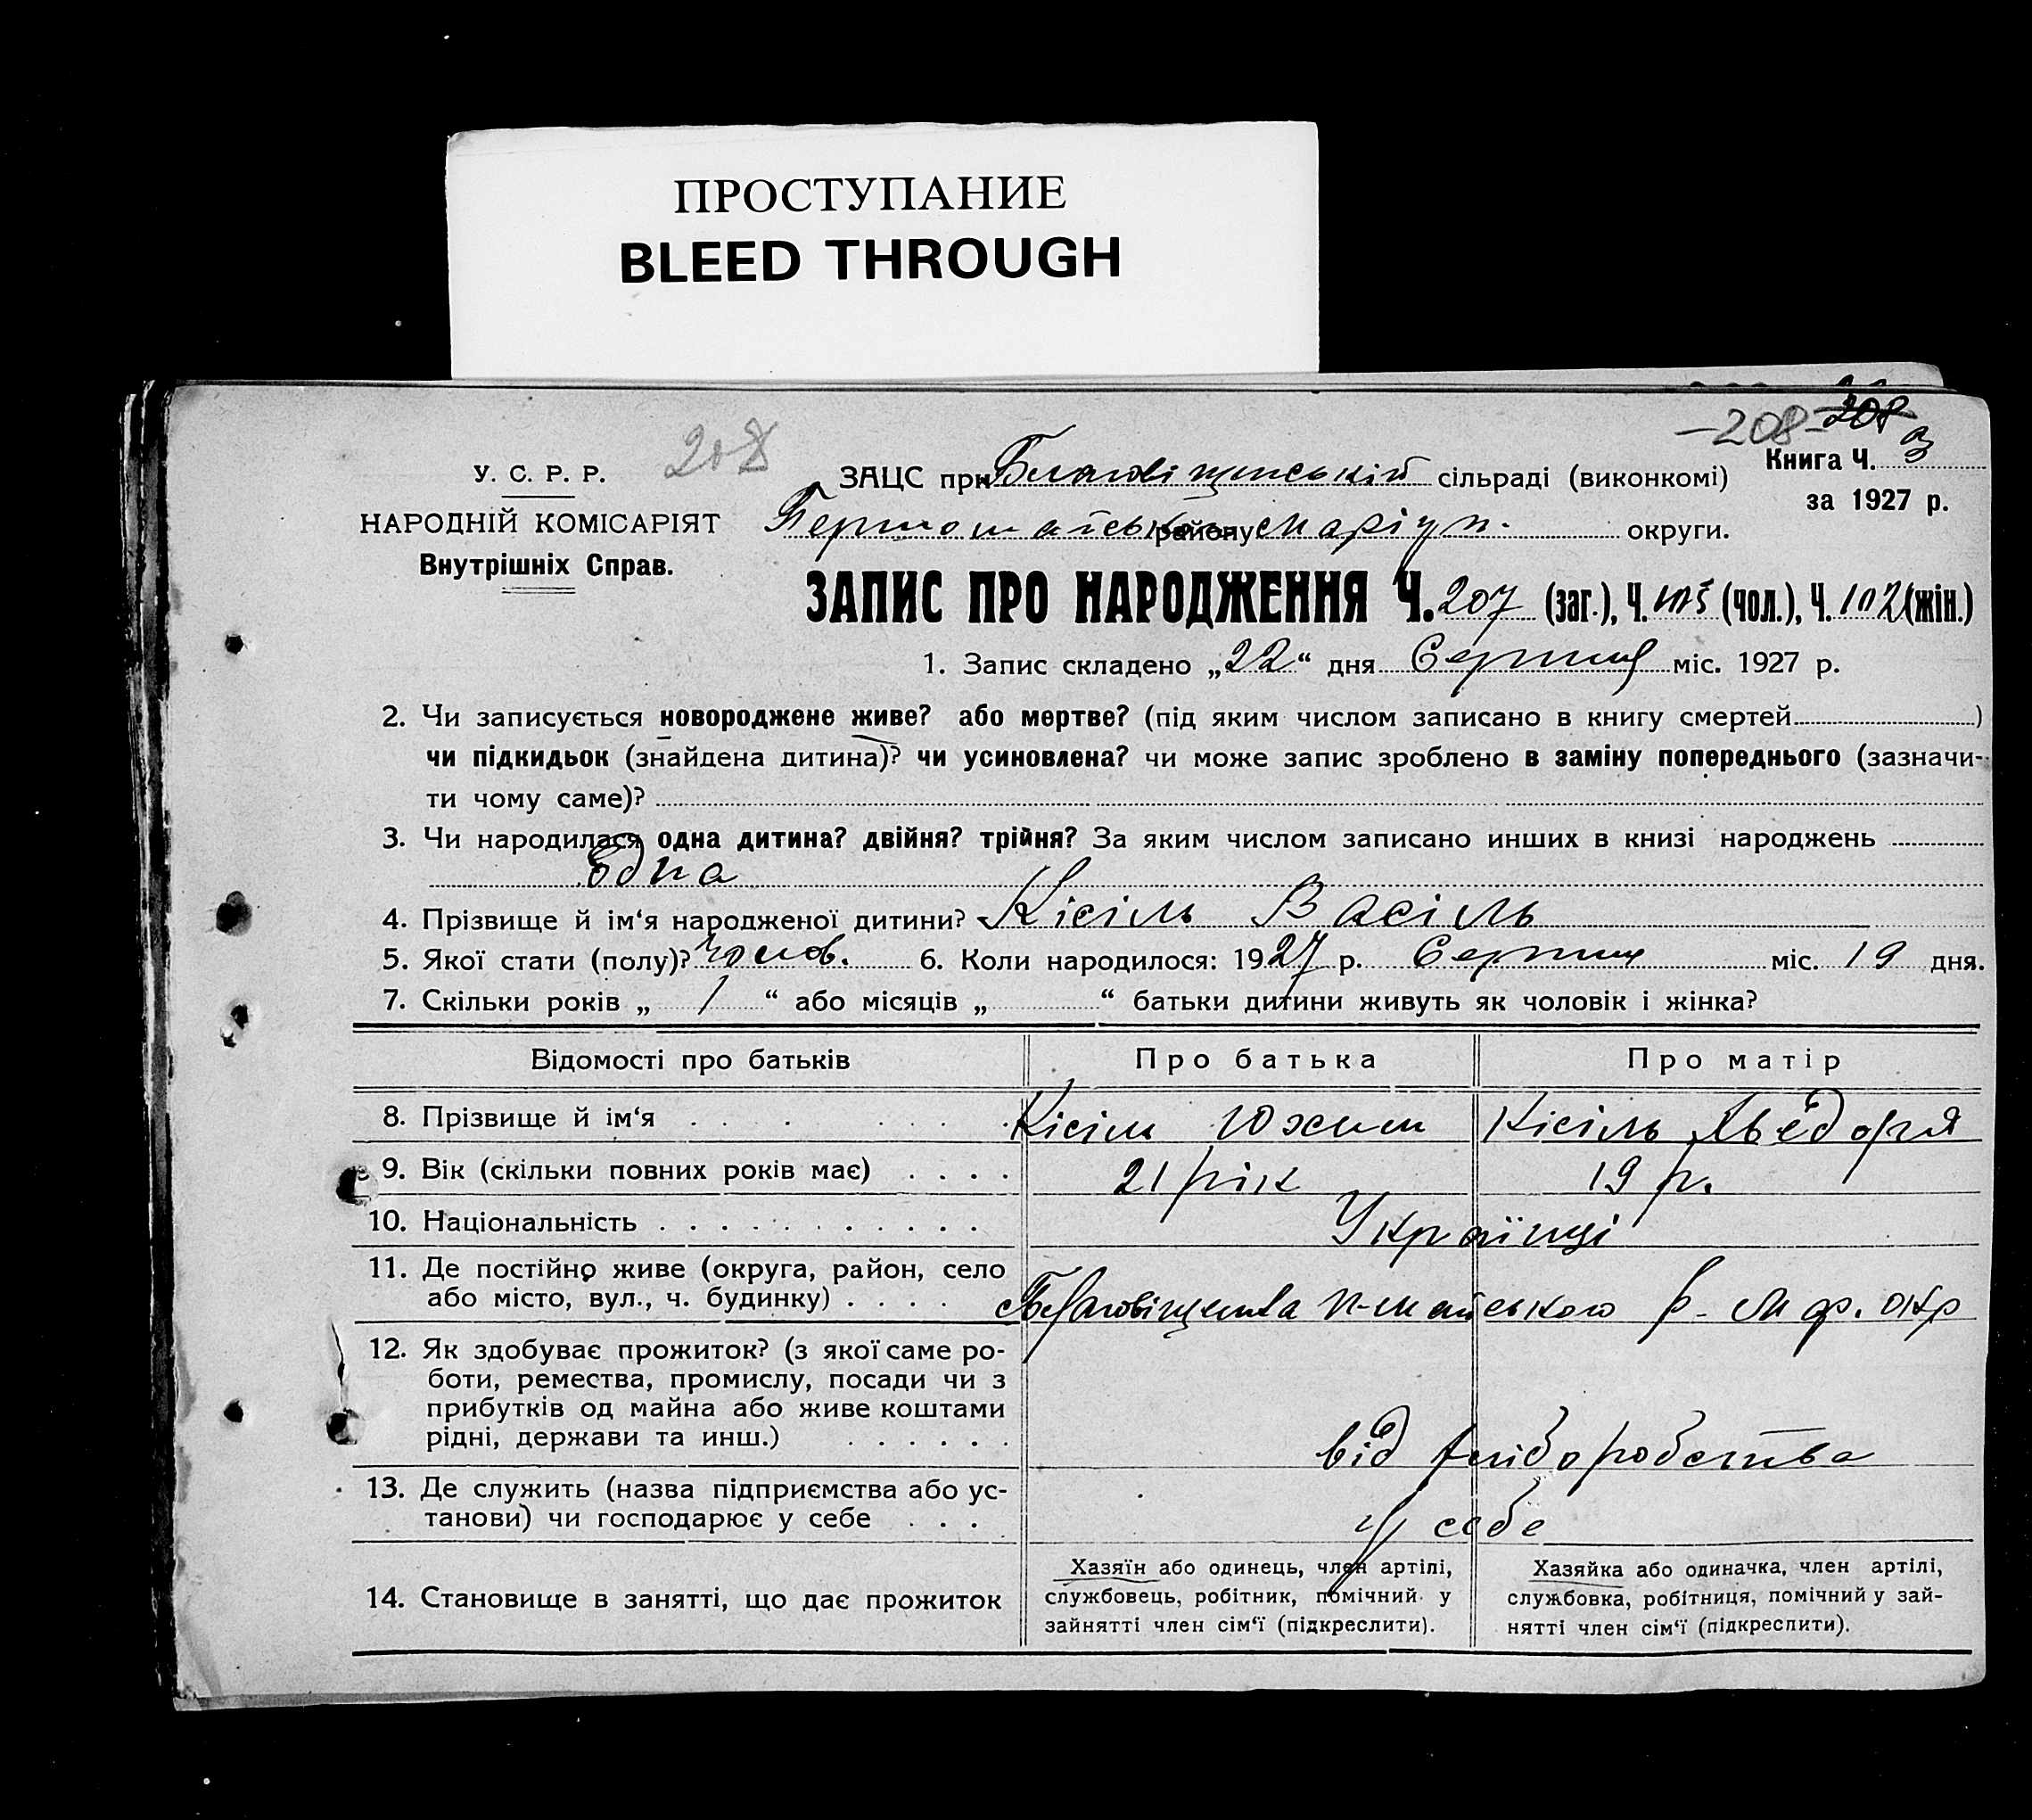 ПРОСТУПАНИЕ
BLEED THROUGH
208
-208- 208
У. С. Р. Р.
НАРОДНІЙ КОМІСАРІЯТ
Внутрішніх Справ.
ЗАЦС при Благовіщенській сільраді (виконкомі)
Книга Ч. 3
за 1927 р.
району Маріуп. округи.
ЗАПИС ПРО НАРОДЖЕННЯ Ч. 207 (заг.), Ч. 105 (чол.), Ч. 102 (жін.)
1. Запис складено „22“ дня Серпня міс. 1927 р.
2. Чи записується новороджене живе? або мертве? (під яким числом записано в книгу смертей )
чи підкидьок (знайдена дитина)? чи усиновлена? чи може запис зроблено в заміну попереднього (зазначи-
ти чому саме)?
3. Чи народилася одна дитина? двійня? трійня? За яким числом записано инших в книзі народжень
Одна
4. Прізвище й ім‘я народженої дитини? Кісіль Васіль
5. Якої стати (полу)? чолов. 6. Коли народилося: 1927 р. Серпня міс. 19 дня.
7. Скільки років „ 1 “ або місяців „ “ батьки дитини живуть як чоловік і жінка?
Відомості про батьків Про батька Про матір
8. Прізвище й ім‘я Кісіль Юхим Кісіль Хвёдоря
9. Вік (скільки повних років має) 21 рік 19 р.
10. Національність Українці
11. Де постійно живе (округа, район, село
або місто, вул., ч. будинку) П-Майського р. М. окр
12. Як здобуває прожиток? (з якої саме ро-
боти, ремества, промислу, посади чи з
прибутків од майна або живе коштами
рідні, держави та инш.) від хліборобства
13. Де служить (назва підприємства або ус-
танови) чи господарює у себе у себе
14. Становище в занятті, що дає прожиток
Хазяїн або одинець, член артілі,
службовець, робітник, помічний у
зайнятті член сім‘ї (підкреслити).
Хазяйка або одиначка, член артілі,
службовка, робітниця, помічний у зай-
нятті член сім‘ї (підкреслити).